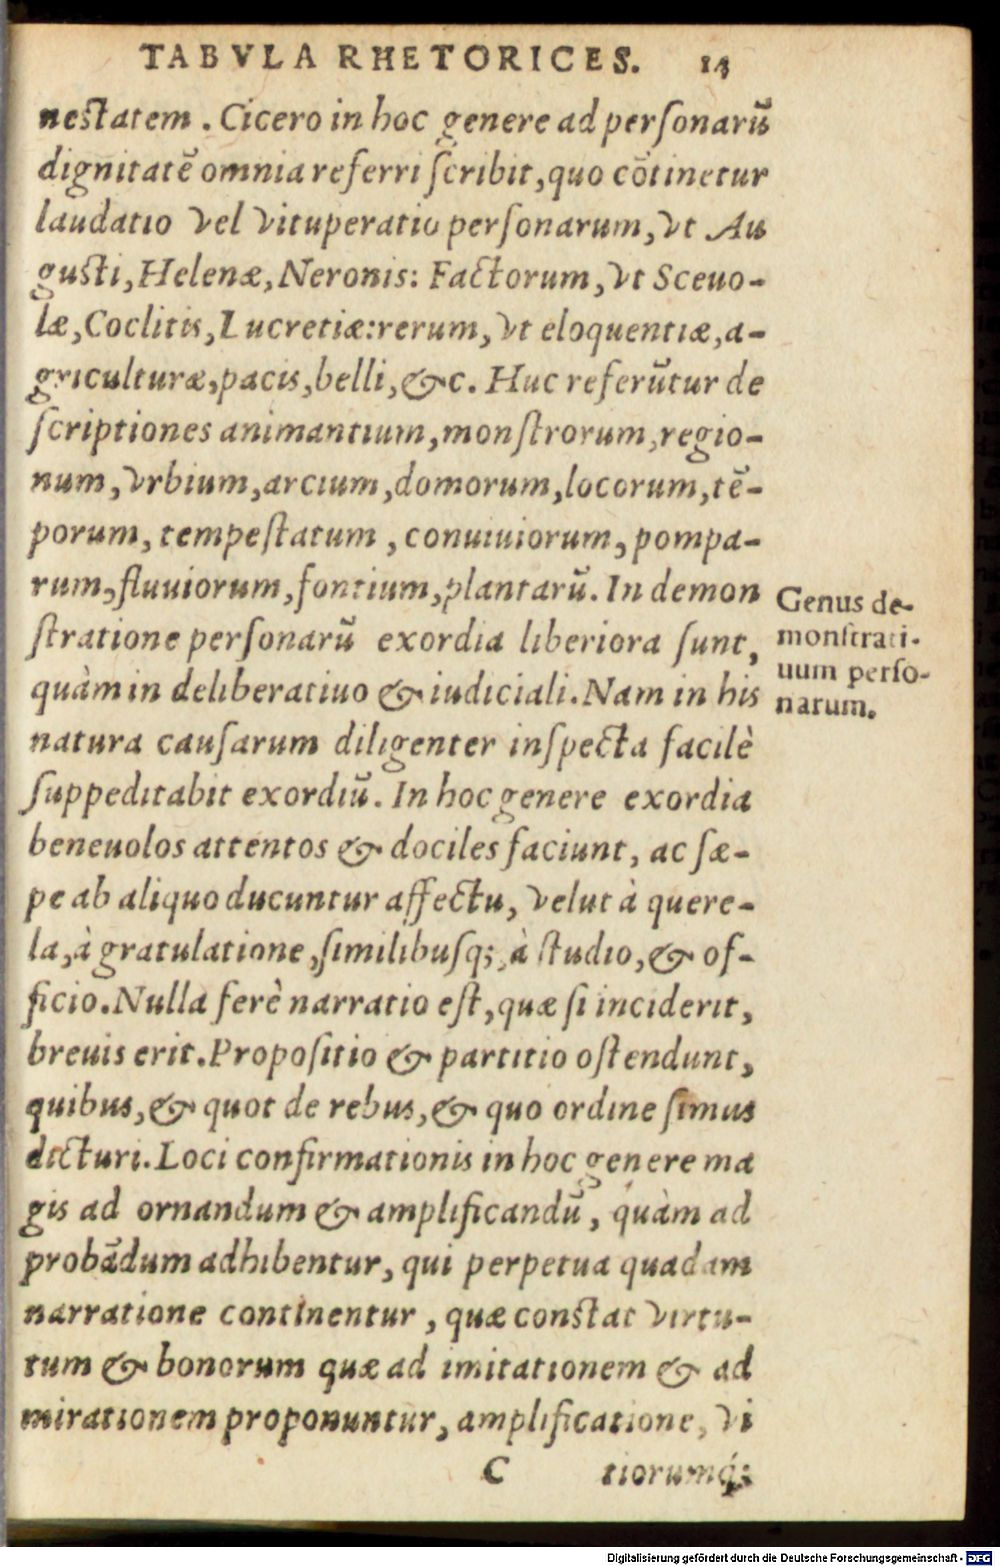 TABVLA RHETORICES. 14
nestatem. Cicero in hoc genere ad personarũ
dignitatẽ omnia referri scribit, quo cõtinetur
laudatio vel vituperatio personarum, vt Au
gusti, Helenæ, Neronis: Factorum, vt Sceuo-
læ, Coclitis, Lucretiæ: rerum, vt eloquentiæ, a-
griculturæ, pacis, belli, &c. Huc referũtur de
scriptiones animantium, monstrorum, regio-
num, vrbium, arcium, domorum, locorum, tẽ-
porum, tempestatum, conuiuiorum, pompa-
rum, fluuiorum, fontium, plantarũ. In demon
stratione personarũ exordia liberiora sunt,
quàm in deliberatiuo & iudiciali. Nam in his
natura causarum diligenter inspecta facilè
suppeditabit exordiũ. In hoc genere exordia
beneuolos attentos & dociles faciunt, ac sæ-
pe ab aliquo ducuntur affectu, velut à quere-
la, à gratulatione, similibusq;, à studio, & of-
ficio. Nulla ferè narratio est, quæ si inciderit,
breuis erit. Propositio & partitio ostendunt,
quibus, & quot de rebus, & quo ordine simus
dicturi. Loci confirmationis in hoc genere ma
gis ad ornandum & amplificandũ, quàm ad
probãdum adhibentur, qui perpetua quadam
narratione continentur, quæ constat virtu-
tum & bonorum quæ ad imitationem & ad
mirationem proponuntur, amplificatione, vi
C tiorumq́;
Genus de-
monstrati-
uum perso-
narum.
Digitalisierung gefördert durch die Deutsche Forschungsgemeinschaft - DFG